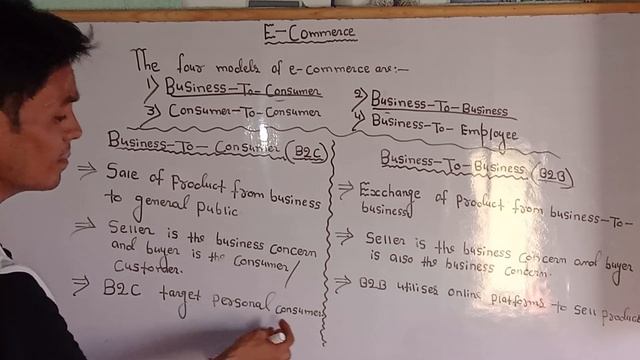 E-Commerce
The four models of e-commerce are:-
1) Business-To-Consumer
2) Business-To-Business
3) Consumer-To-Consumer
4) Business-To-Employee
Business-To-Consumer (B2C)
⇒ Sale of Product from business
to general public
⇒ Seller is the business concern
and buyer is the consumer/
Custorder.
⇒ B2C target personal consumer
Business-To-Business (B2B)
⇒ Exchange of Product from business-To-
business
⇒ Seller is the business concern and buyer
is also the business concern.
⇒ B2B utilises online platforms to sell product